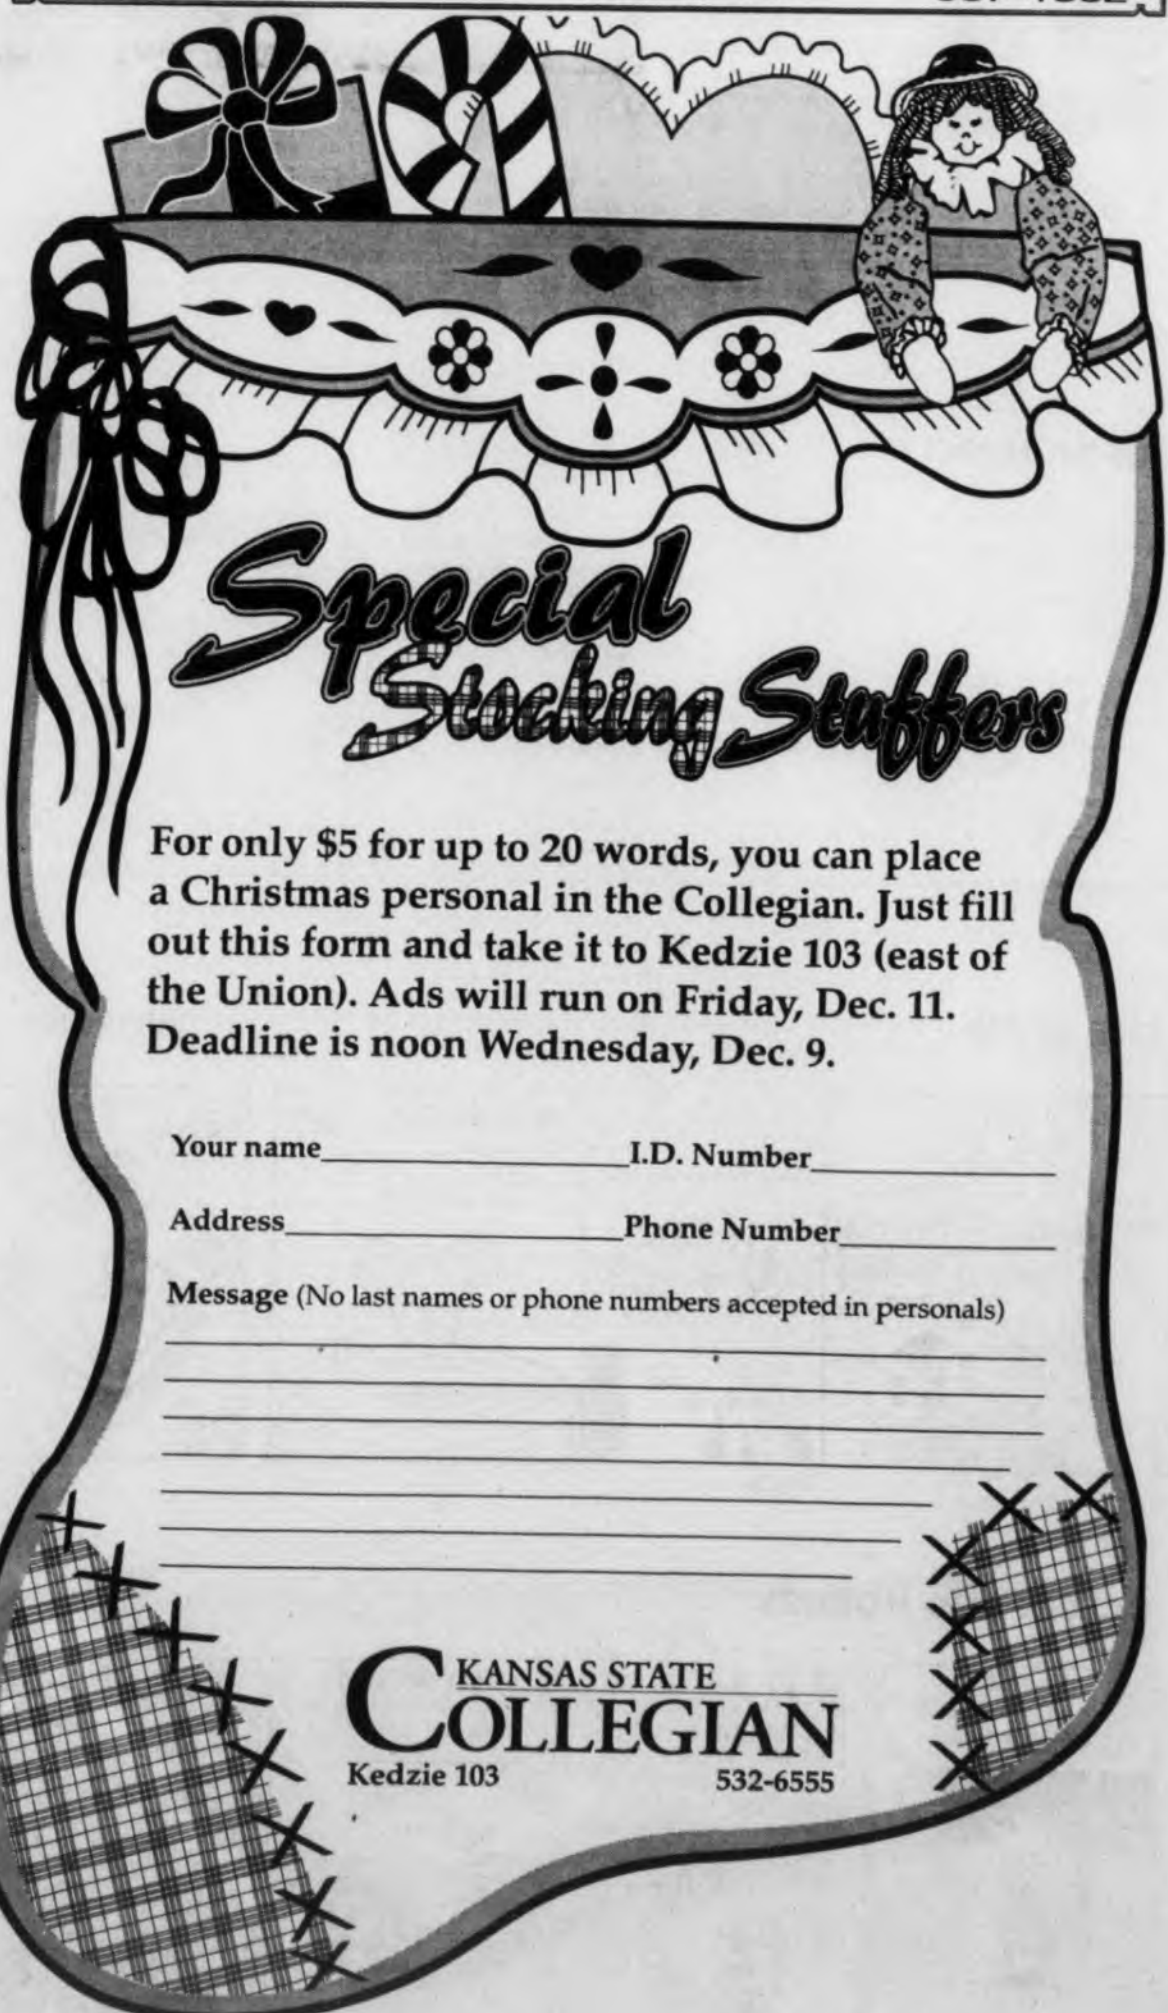 Special
Stocking Stuffers
For only $5 for up to 20 words, you can place
a Christmas personal in the Collegian. Just fill
out this form and take it to Kedzie 103 (east of
the Union). Ads will run on Friday, Dec. 11.
Deadline is noon Wednesday, Dec. 9.
Your name I.D. Number
Address Phone Number
Message (No last names or phone numbers accepted in personals)
KANSAS STATE
COLLEGIAN
Kedzie 103 532-6555